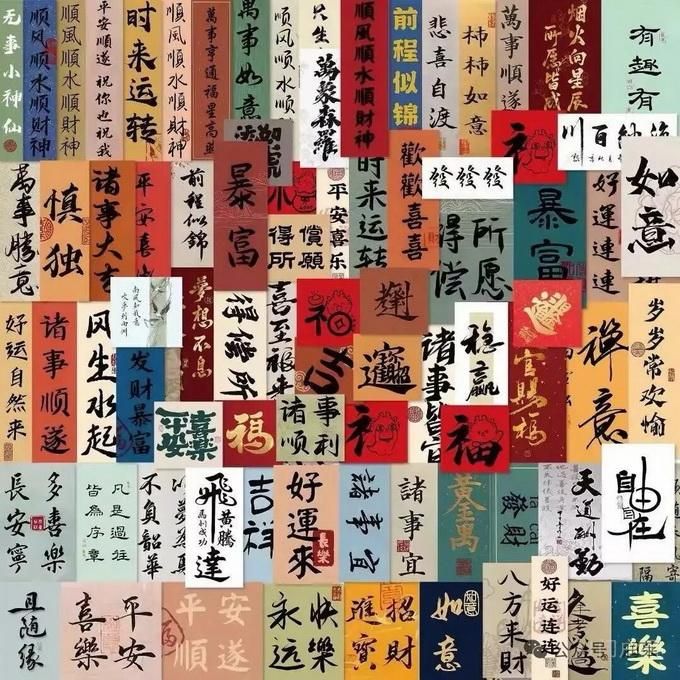 无事小神仙
顺风顺水顺财神
順風順水順財神
平安順遂祝你也祝我
时来运转
順風順水順財神
萬事亨通福星高照
萬事如意
顺风顺水顺财神
萬象森羅
順風順水順財神
前程似锦
悲喜自渡
柿柿如意
萬事順遂
烟火向星辰
所愿皆成
有趣有
海納百川
萬事勝意
慎独
诸事大吉
平安喜
前程似錦
暴富
得所
償願
平安喜乐
时来运转
歡歡喜喜
發發發
得偿
所愿
福
暴富
好運連連
如意
好运自然来
诸事順遂
风生水起
南風知我意
吹夢到西洲
发财暴富
夢想不息
得偿所
喜至福來
福
诸事皆
稳赢
官赐福
禅意
岁岁常欢愉
平安
喜樂
福
诸事
顺利
福
福
長安寧
多喜樂
凡是過往
皆為序章
不负韶華
飛黃騰達
馬到成功
吉祥
好運來
長樂
諸事宜
諸事宜
黄金萬
發財
天道酬勤
自由自在
且随缘
喜樂
平安
平順
安遂
永远
快樂
進寶
招财
如意
八方来财
好运连连
喜樂
公众号